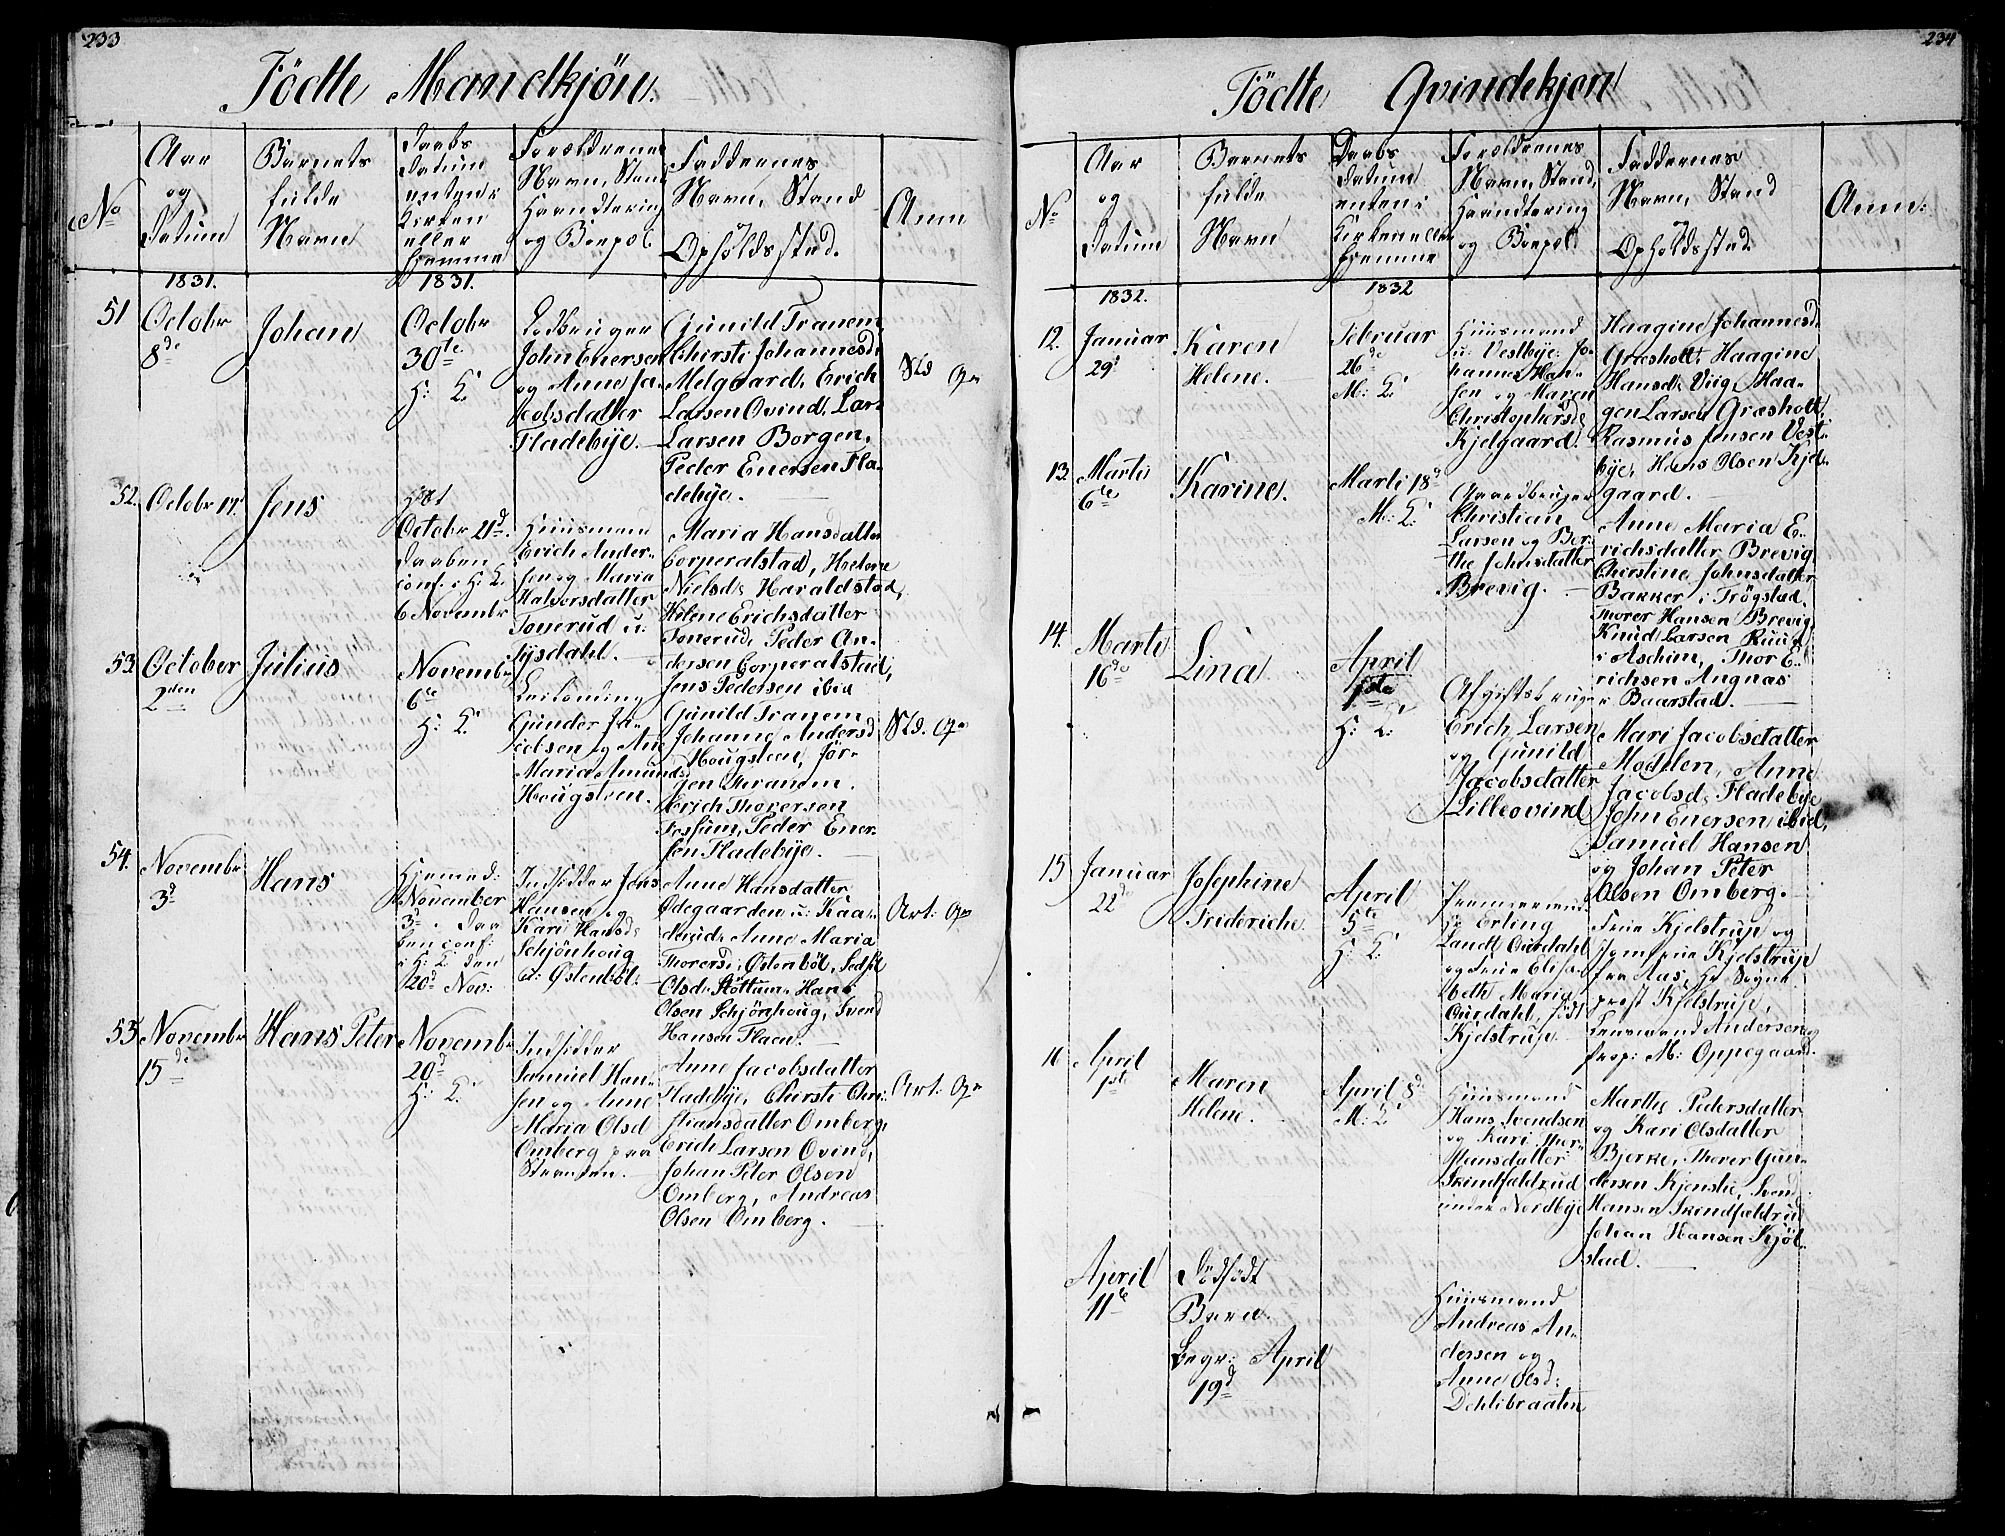 233
Födte Mandkjön.
No
Aar
og
Datum
Barnets
fulde
Navn
Daabs
Datum
enten i
Kirken
eller
Hjemme
Forældrenes
Navn, Stand
Haandtering
og Boepæl.
Faddernes
Navn, Stand
og
Opholdssted.
Anm
1831.
1831.
51
Octobr
8de
Johan
Octobr
30te
H: K:
John Enersen
og Anne Ja-
cobsdatter
Fladebye.
Gunild Tranem,
Chirsti Johannesd:
Melgaard, Erich
Larsen Ovind, Lar-
Larsen Borgen,
Peder Enersen Fla-
debye.
52.
Octobr 17.
Jens
Octobr 21d.
Daaben
conf. i H: K.
6 Novembr
Huusmand
Erich Ander-
sen og Maria
Halvorsdatter
Tonerud u:
Sysdahl.
Maria Hansdatter
Corperalstad, Helene
Nielsd: Haraldstad,
Helene Erichsdatter
Tonerud, Peder An-
dersen Corperalstad,
Jens Pedersen ibid
53.
October
2den
Julius
Novembr
6te
H: K:
Leilænding
Gunder Ja-
cobsen og Ane
Maria Amundsd
Hougsteen.
Gunild Tranem
Johanne Andersd
Hougsteen, Jör-
gen Tranem.
Erich Thorersen
Fossum, Peder Ener-
sen Fladebye.
54.
Novembr
3d
Hans
Hjemmed:
November
3d. Daa-
ben conf:
i H: K: den
20d Nov:
Indsidder Jens
Hansen og
Kari Hansd:
Schjönhoug
u: Østenböl.
Anne Hansdatter
Ødegaarden u: Kaa-
derud, Anne Maria
Thorersd: Østenböl, Sedsil
Olsd: Slöttum, Hans
Olsen Schjönhoug, Svend
Hansen Flaen.
55.
Novembr
15de
Hans Peter
Novembr
20d
H: K:
Indsidder
Samuel Han-
sen og Anne
Maria Olsd
Omberg paa
Stranden.
Anne Jacobsdatter
Fladebye, Chirsti Chri-
stiansdatter Omberg,
Erich Larsen Ovind,
Johan Peter Olsen
Omberg, Andreas
Olsen Omberg.
234
Födte Qvindekjön
No
Aar
og
Datum
Barnets
fulde
Navn
Daabs
Datum
enten i
Kirken eller
Hjemme
Forældrenes
Navn, Stand,
Haandtering
og Boepæl
Faddernes
Navn, Stand
og
Opholdssted.
Anm:
1832.
1832
12.
Januar
29d
Karen
Helene.
Februar
26de
M: K:
Huusmand
u: Vestbye Jo-
hannes Han-
sen og Maren
Christophersd:
Kjelgaard.
Haagine Johannesd:
Græsholt, Haagine
Hansd: Viig, Haa-
gen Larsen Græsholt,
Rasmus Jensen Vest-
bye, Hans Olsen Kjel-
gaard.
13.
Marti
6te
Karine.
Marti 18d
M: K:
Gaardbruger
Christian
Larsen og Ber-
the Johnsdatter
Brevig.
Anne Maria E-
richsdatter Brevig
Chirstine Johnsdatter
Bakker i Trögstad,
Thorer Hansen Brevig
Knud Larsen Ruud
i Aschim, Thor E-
richsen Angnas
i Baarstad.
14.
Marti
16de
Lina
April
1ste
H: K:
Afgiftsbruger
Erich Larsen
og Gunild
Jacobsdatter
Lilleovind
Mari Jacobsdatter
Modelen, Anne
Jacobsd: Fladebye
John Enersen ibid,
Samuel Hansen
og Johan Peter
Olsen Omberg.
15
Januar
22d
Josephine
Friderische
April
5te
H: K:
Erling
Landt Ourdahl
og Frue Elisa-
beth Maria
Ourdahl, föd
Kjelstrup.
Frue Kjelstrup og
Jomfrue Kjelstrup
fra Aas, Hr Sogne-
præst Kjelstrup,
Lensmand Andersen og
prop: M: Oppegaard.
16
April
1ste
Maren
Helene.
April 8d
M: K:
Huusmand
Hans Svendsen
og Kari Thor-
stensdatter
Skindfaldrud
under Nordbye
Marthe Pedersdatter
og Kari Olsdatter
Bjerke, Thorer Gun-
dersen Kjenslie, Svend
Hansen Skindfældrud
Johan Hansen Kjöl-
stad.
April
11te
Dödfödt
Barn.
begr: April
19d
Huusmand
Andreas An-
dersen og
Anne Olsd:
Dehlibraaten